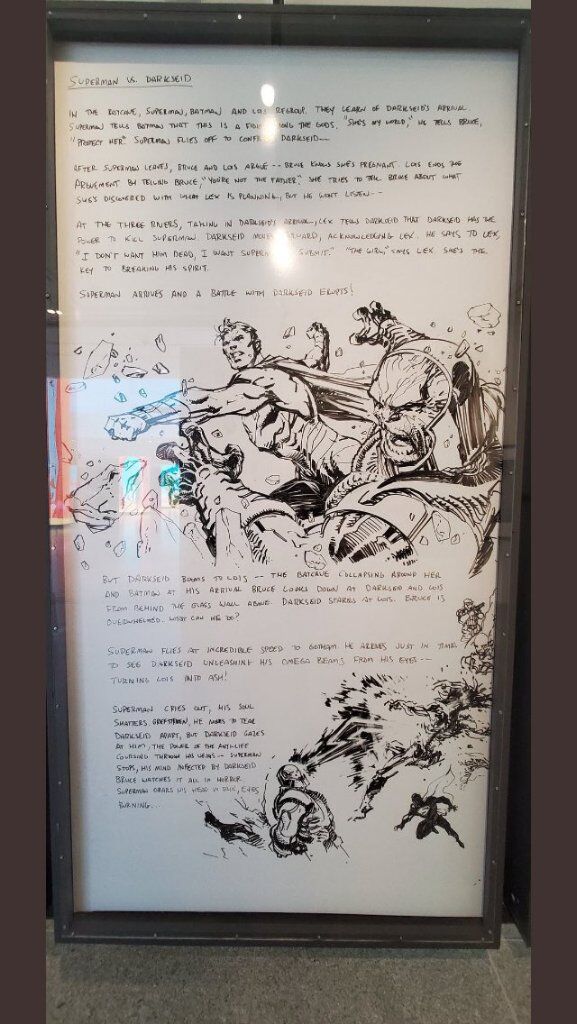 SUPERMAN VS. DARKSEID
IN THE BATCAVE, SUPERMAN, BATMAN AND LOIS REGROUP. THEY LEARN OF DARKSEID'S ARRIVAL.
SUPERMAN TELLS BATMAN THAT THIS IS A FIGHT AMONG THE GODS. "SHE'S MY WORLD," HE TELLS BRUCE,
"PROTECT HER." SUPERMAN FLIES OFF TO CONFRONT DARKSEID--
AFTER SUPERMAN LEAVES, BRUCE AND LOIS ARGUE -- BRUCE KNOWS SHE'S PREGNANT. LOIS ENDS THE
ARGUEMENT BY TELLING BRUCE, "YOU'RE NOT THE FATHER." SHE TRIES TO TELL BRUCE ABOUT WHAT
SHE'S DISCOVERED WITH WHAT LEX IS PLANNING, BUT HE WON'T LISTEN--
AT THE THREE RIVERS, TAKING IN DARKSEID'S ARRIVAL, LEX TELLS DARKSEID THAT DARKSEID HAS THE
POWER TO KILL SUPERMAN. DARKSEID MOVES FORWARD, ACKNOWLEDGING LEX. HE SAYS TO LEX,
"I DON'T WANT HIM DEAD, I WANT SUPERMAN TO SUBMIT." "THE GIRL," SAYS LEX. SHE'S THE
KEY TO BREAKING HIS SPIRIT.
SUPERMAN ARRIVES AND A BATTLE WITH DARKSEID ERUPTS!
BUT DARKSEID BOOMS TO LOIS -- THE BATCAVE COLLAPSING AROUND HER
AND BATMAN AT HIS ARRIVAL BRUCE LOOKS DOWN AT DARKSEID AND LOIS
FROM BEHIND THE GLASS WALL ABOVE. DARKSEID STARES AT LOIS. BRUCE IS
OVERWHELMED. WHAT CAN HE DO?
SUPERMAN FLIES AT INCREDIBLE SPEED TO GOTHAM. HE ARRIVES JUST IN TIME
TO SEE DARKSEID UNLEASHING HIS OMEGA BEAMS FROM HIS EYES --
TURNING LOIS INTO ASH!
SUPERMAN CRIES OUT, HIS SOUL
SHATTERS. GRIEFSTRICKEN, HE MOVES TO TEAR
DARKSEID APART, BUT DARKSEID GAZES
AT HIM, THE POWER OF THE ANTI-LIFE
COURSING THROUGH HIS VEINS -- SUPERMAN
STOPS, HIS MIND INFECTED BY DARKSEID
BRUCE WATCHES IT ALL IN HORROR
SUPERMAN CRANKS HIS HEAD IN PAIN, EYES
BURNING...